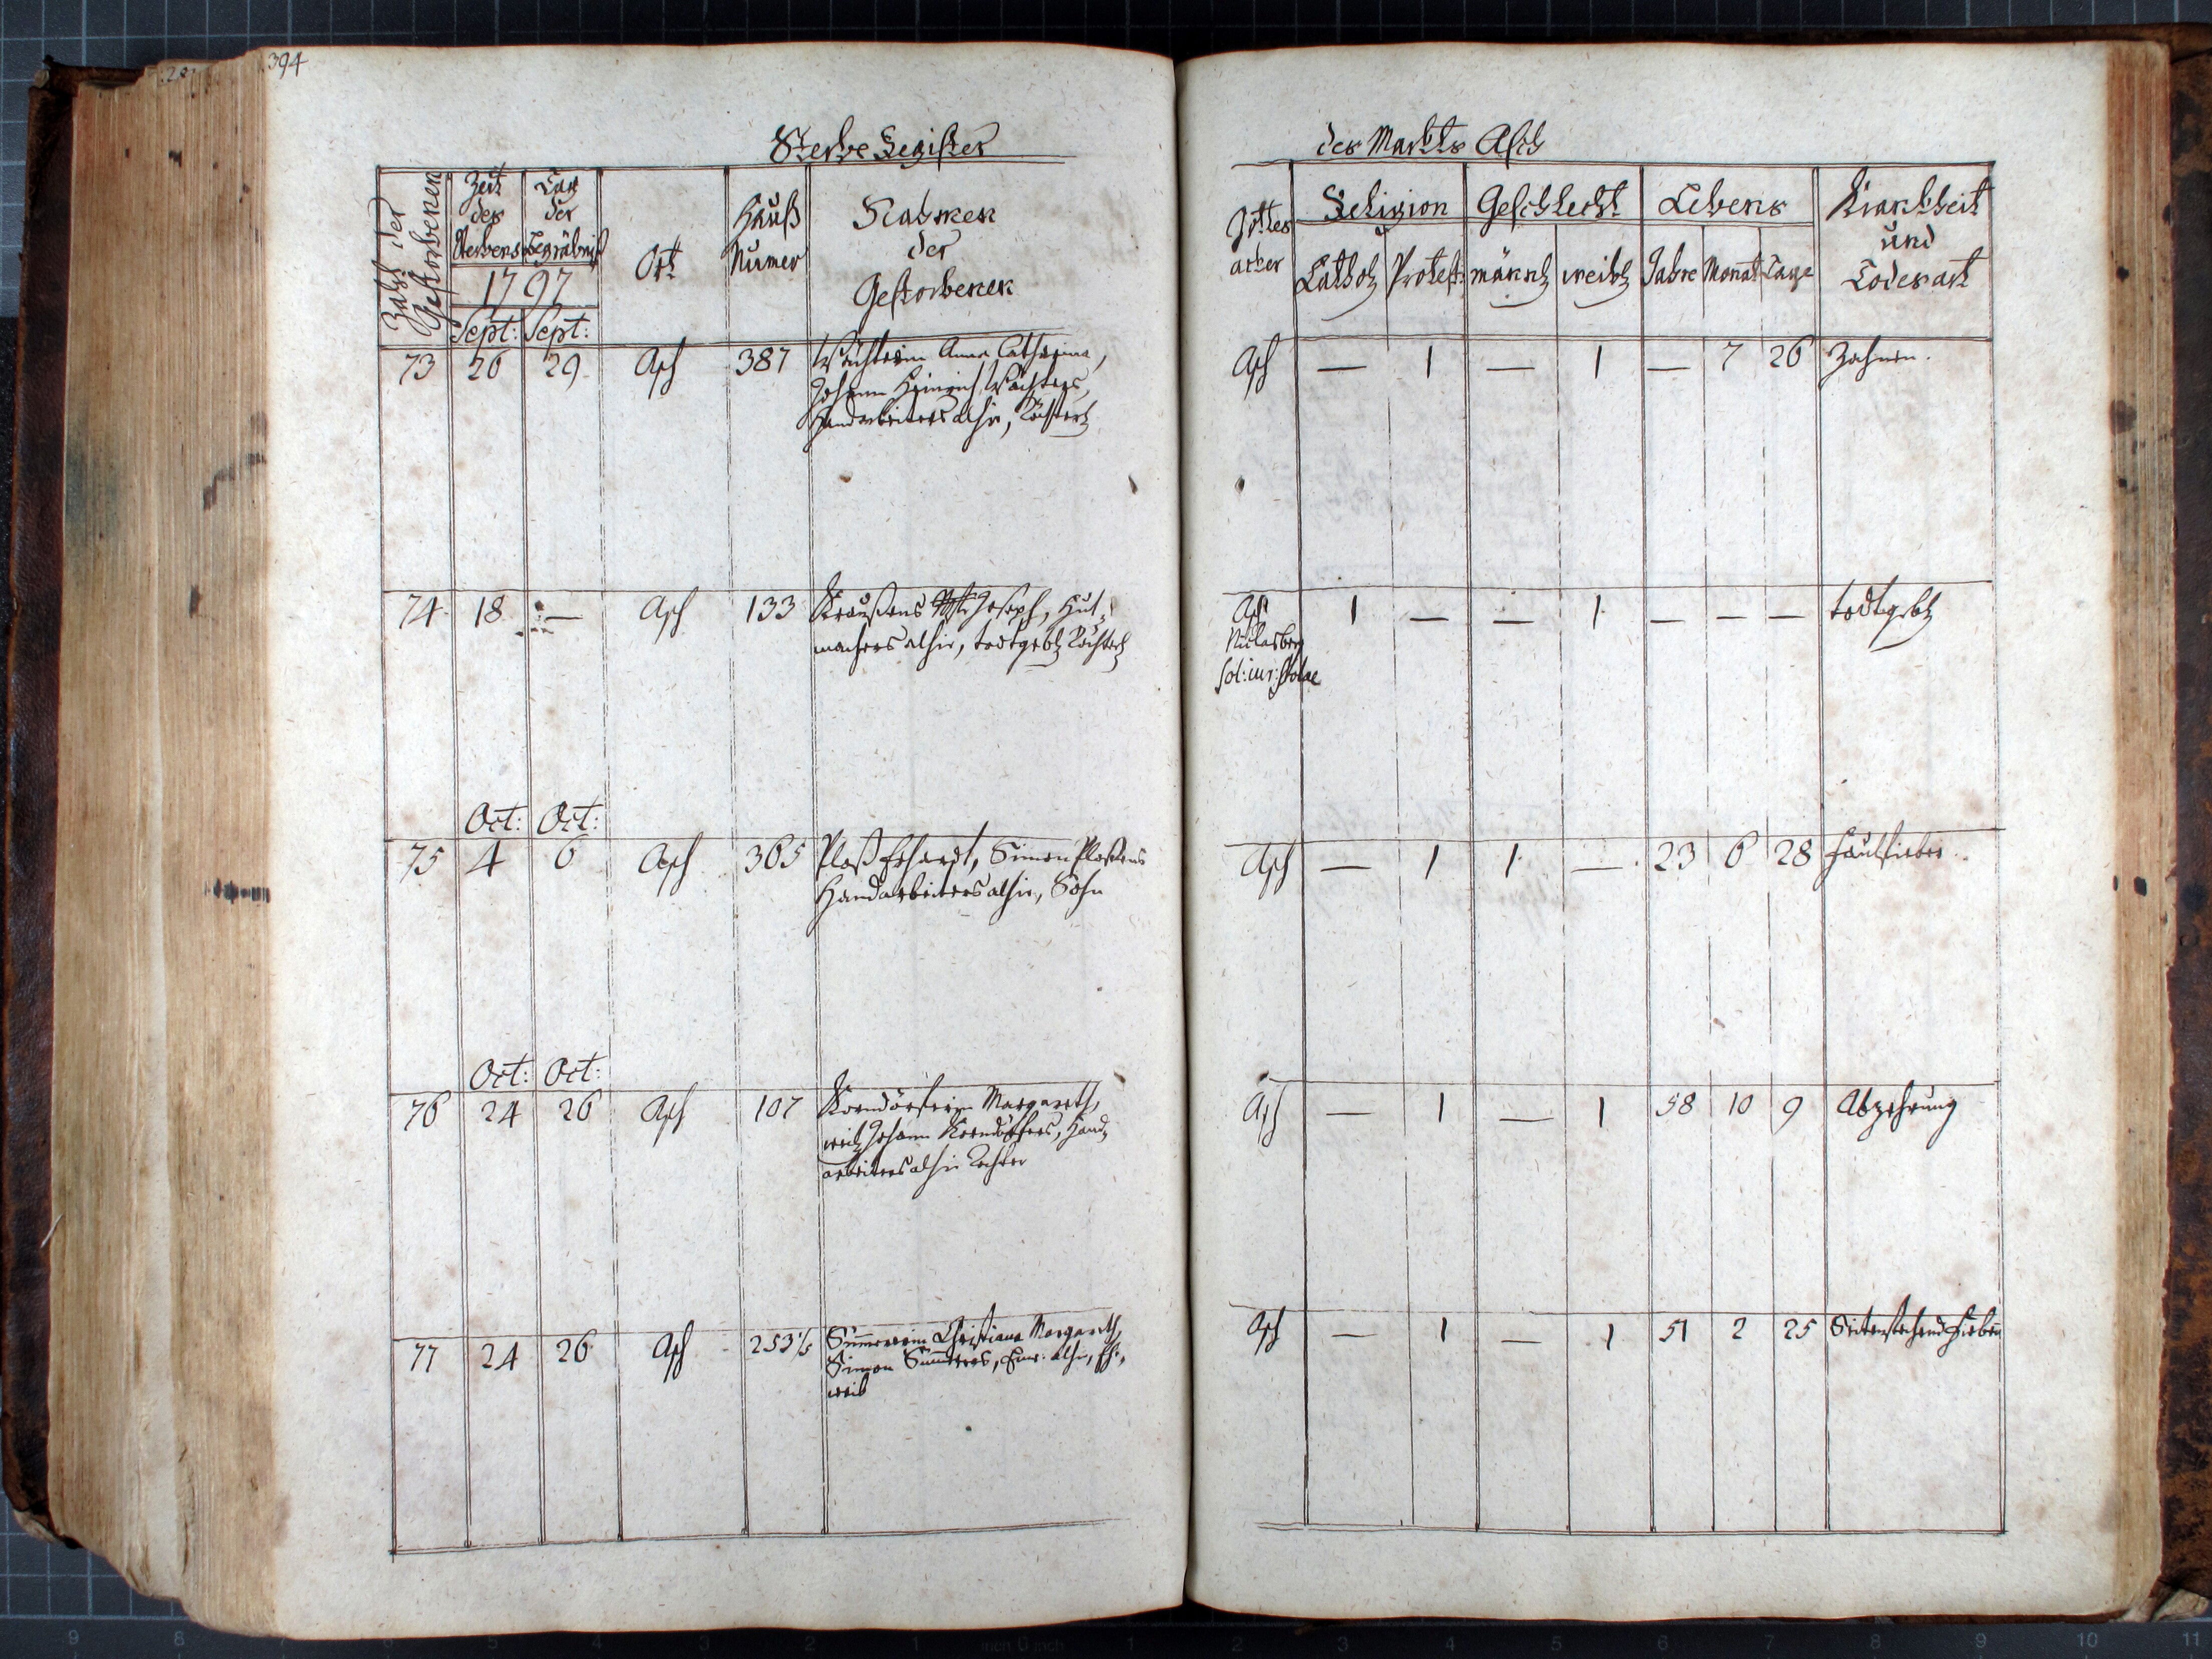 394
Sterbe Register
des Markts Asch
Zahl der Gestorbenen
Zeit des Sterbens
Tag der Begräbniß
1797
Sept: Sept:
Ort
Hauß Numer
Nahmen der Gestorbenen
Gottes acker
Religion
Cathol Protest:
Geschlecht
männl weibl
Lebens
Jahre Monat Tage
Krankheit und Todesart
73 26 29 Asch 387 Wächterin Anna Catharina, Asch — 1 — 1 — 7 26 Zahnen.
Johann Heinrich Wächters,
Handarbeiters alhie, Töchterl
74 18 — Asch 133 Kraußens Joseph, Hut- Asch 1 — — 1 — — — todtgebl
machers alhie, todtgebl Töchterl Niklasberg
sol: iur: stolae
Oct: Oct:
75 4 6 Asch 365 Ploß Erhardt, Simon Ploßens Asch — 1 1 — 23 6 28 Faulfieber
Handarbeiters alhie, Sohn
Oct: Oct:
76 24 26 Asch 107 Korndörferin Margareth, Asch — 1 — 1 58 10 9 Abzehrung
weil Johann Korndörfers, Hand-
arbeiters alhie Tochter
77 24 26 Asch 253 1/5 Christiana Margareth, Asch — 1 — 1 51 2 25 Seitenstechend Fieber
Simon alhie, Ehe-
weib